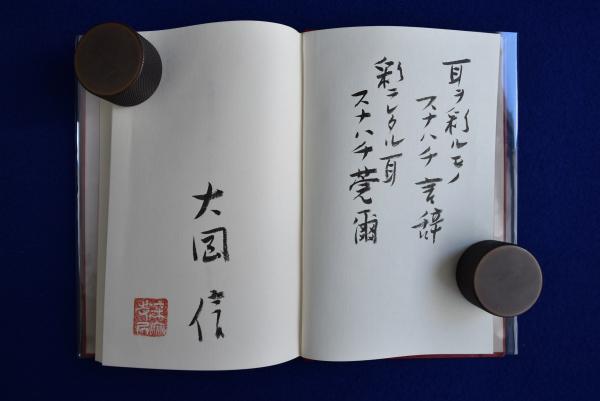 耳ヲ彩ルモノ
スナハチ言辞
彩ラレタル耳
スナハチ莞爾
大岡信